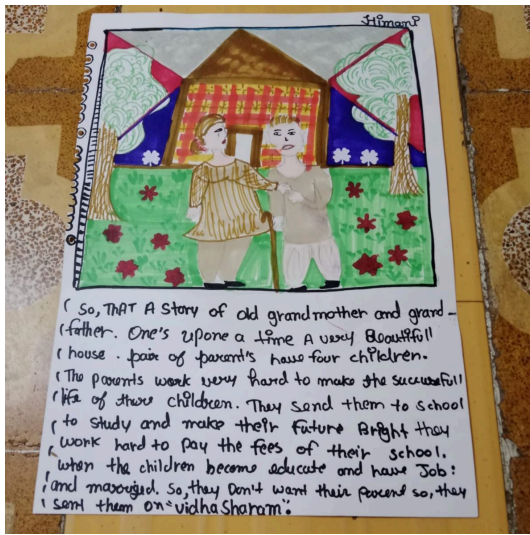 Himani
So, THAT A Story of old grandmother and grand-
father. One's upone a time A very Beautifull
house. pair of parent's have four children.
The parents work very hard to make the successfull
life of there children. They send them to school
to study and make their future Bright they
work hard to pay the fees of their school.
when the children become educate and have Job:
and marriged. So, they Don't want their parent so, they
sent them on "vidhasharam".